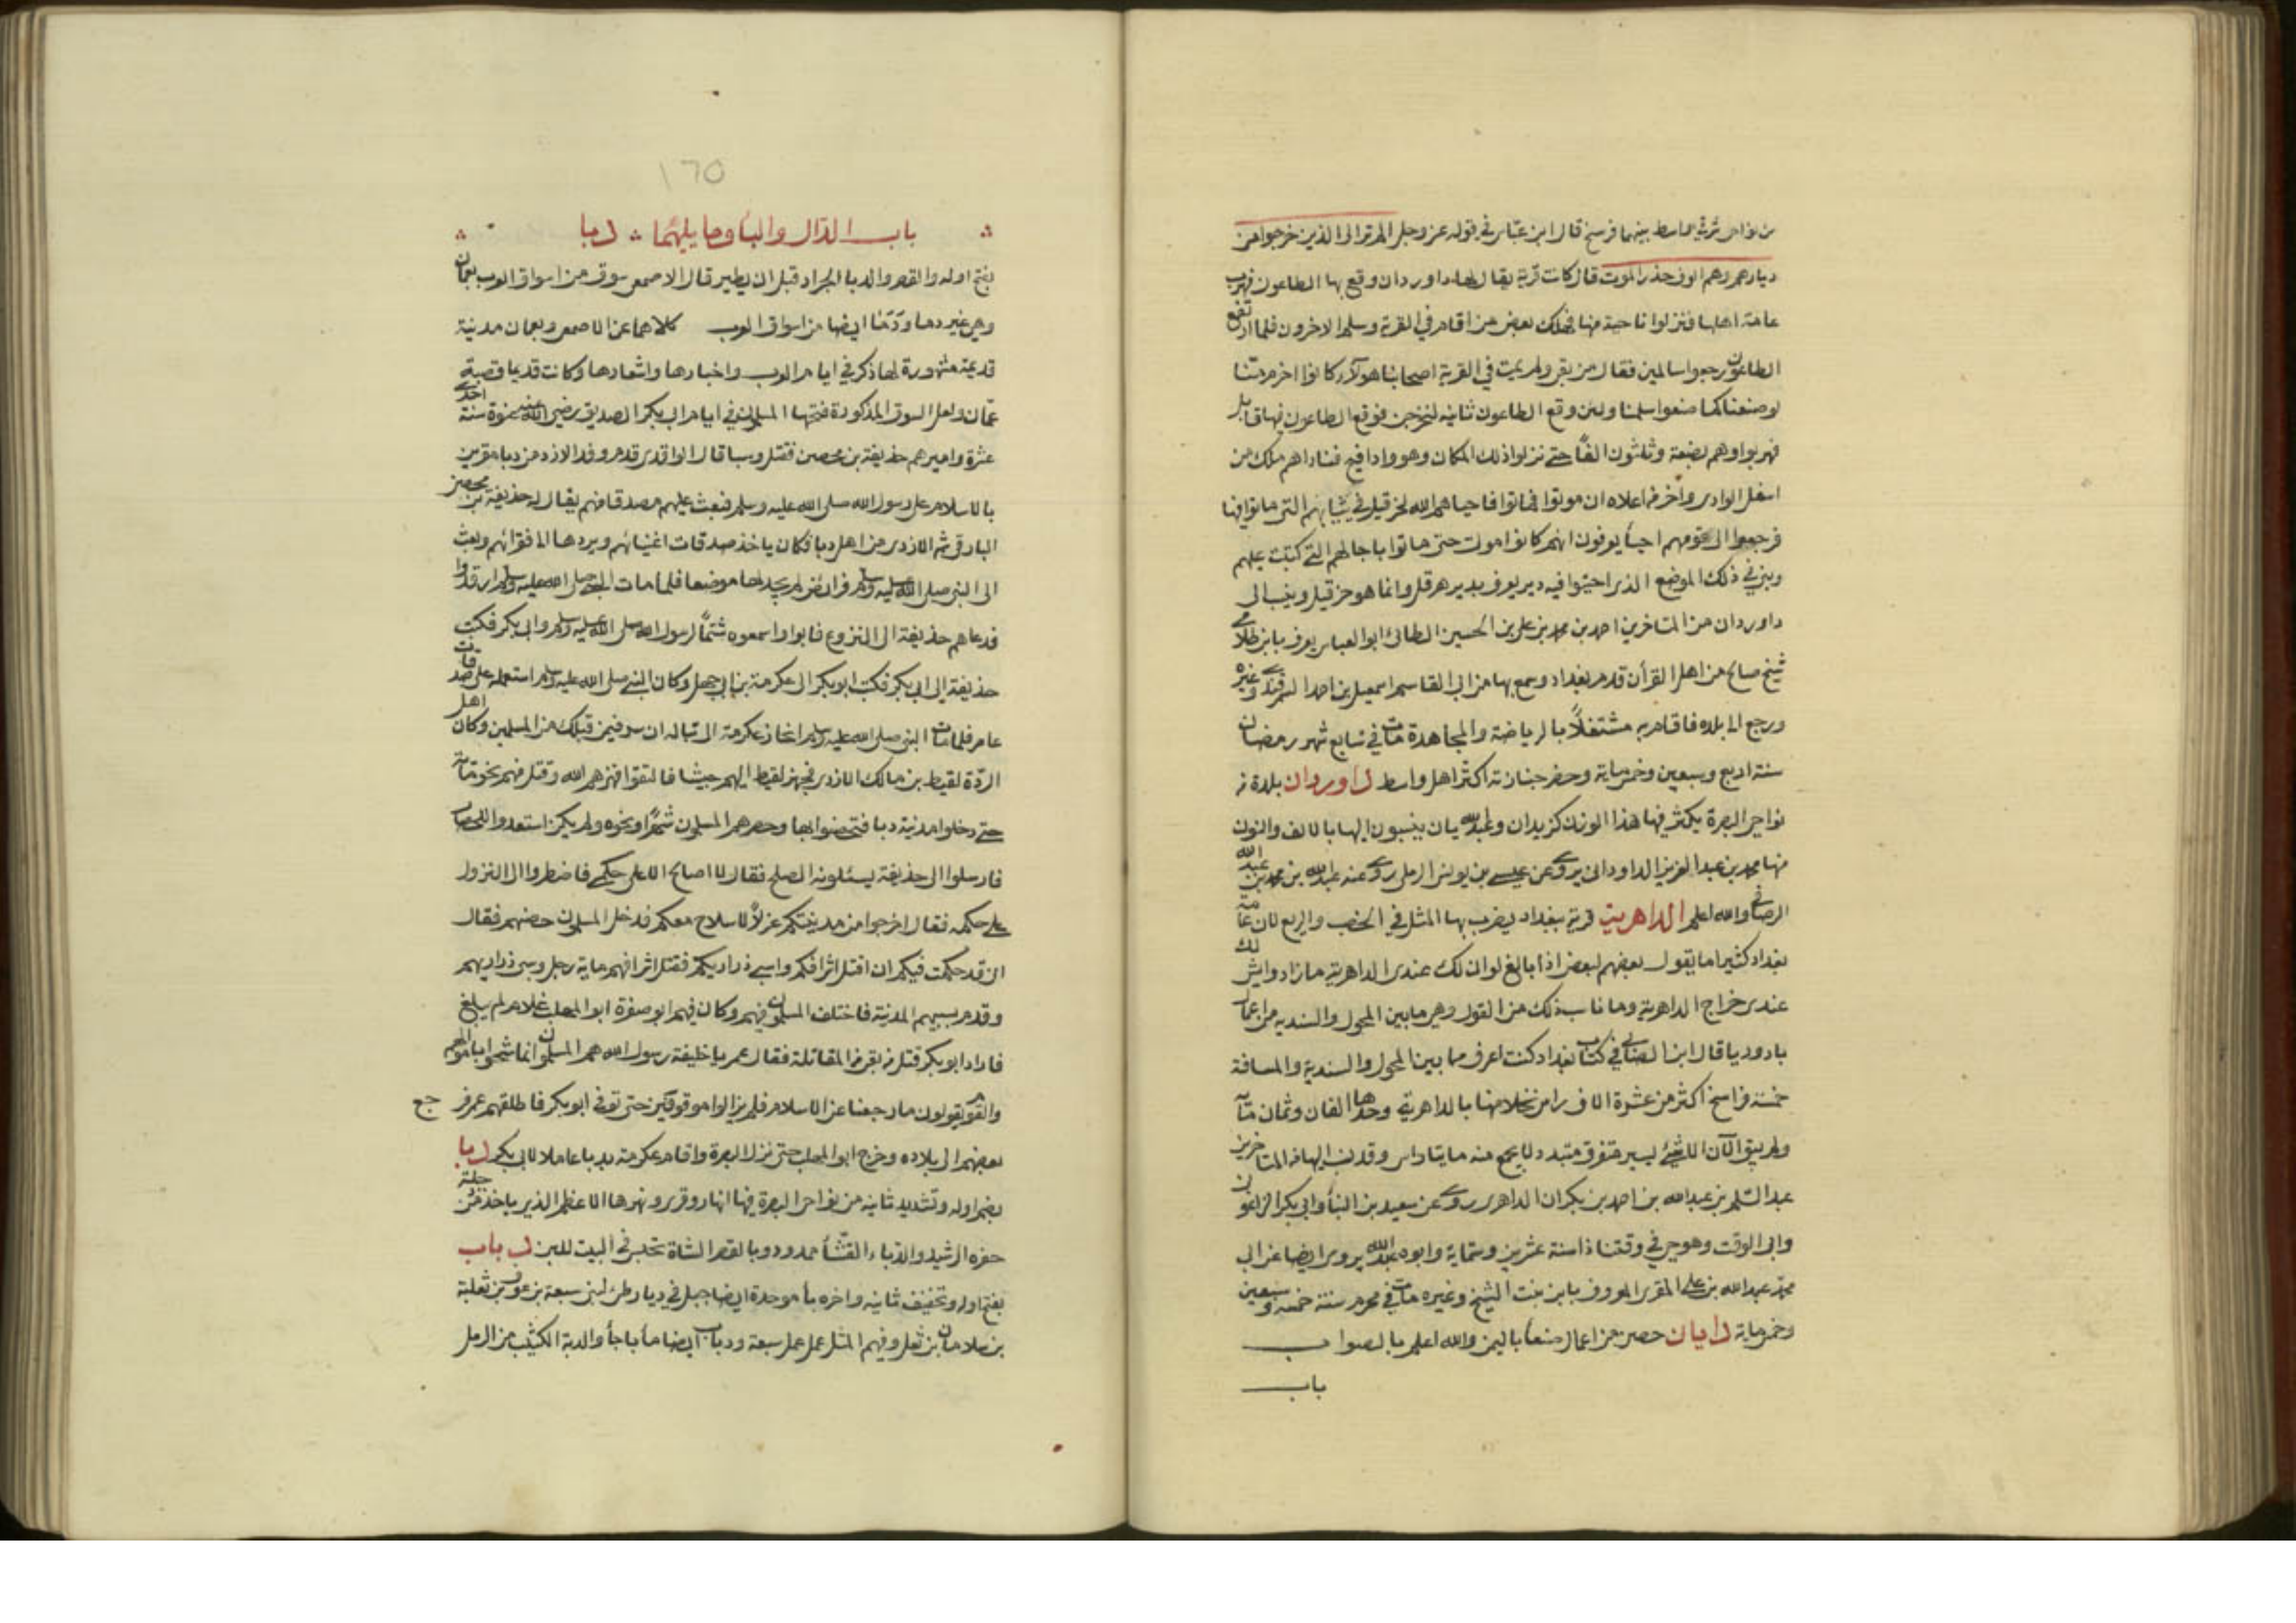 من نواحى شرقى واسط بينهما فرسخ قال ابن عباس في قوله عز وجل الم تر الى الذين خرجوا من
ديارهم وهم الوف حذر الموت قال كانت قرية يقال لها داوردان وقع بها الطاعون فهرب
عامة اهلها فنزلوا ناحية منها فهلك بعض من اقام في القرية وسلم الاخرون فلما ارتفع
الطاعون رجعوا سالمين فقال من بقى ولم يمت في القرية اصحابنا هولاء كانوا احزم منا
لو صنعنا كما صنعوا سلمنا ولئن وقع الطاعون ثانيه لنخرجن فوقع الطاعون فيها قابل
فهربوا وهم بضعة وثلثون الفًا حتى نزلوا ذلك المكان وهو واد افيح فناداهم ملك من
اسفل الوادى وآخر من اعلاه ان موتوا فماتوا فاحياهم الله لحزقيل في ثيابهم التى ماتوا فيها
فرجعوا الى قومهم احيأ يعرفون انهم كانوا موت حتى ماتوا باجالهم التى كتبت عليهم
وبنى في ذلك الموضع الذى احيوا فيه دير يعرف بدير هرقل وانما هو حزقيل وينسب الى
داوردان من المتاخرين احمد بن محمد بن على بن الحسين الطائى ابو العباس يعرف بابن طلامى
شيخ صالح من اهل القرأن قدم بغداد وسمع بها من ابى القاسم اسمعيل بن احمد السمرقندى وغيره
ورجع الى بلده فاقام به مشتغلاً بالرياضة والمجاهدة مات في سابع شهر رمضان
سنة اربع وسبعين وخمسماية وحضر جنازته اكثر اهل واسط داوردان بلدة من
نواحى البصرة يكثر فيها هذا الوزن كزيدان وعبدالله يان ينسبون اليها بالالف والنون
منها محمد بن عبد العزيز الداودانى يروى عن عيسى بن يونس الرملى روى عنه عبدالله بن محمد بن عبدالله
الرصافى والله اعلم الداهرية قرية ببغداد يضرب بها المثل في الخصب والريع لان عامة
بغداد كثيرا ما يقول بعضهم لبعض اذا بالغ لو ان لك عندى الداهرية ما زاد وايش لك
عندى خراج الداهرية وما ناسب ذلك من القول وهى ما بين المحول والسندية من اعمال
بادوريا قال ابن الصابى في كتاب بغداد كنت اعرف ما بين المحول والسندية والمسافة
خمسة فراسخ اكثر من عشرة الاف راس نخلا منها بالداهرية وحدها الفان وثمان مائة
ولم يبق الآن الا شئ يسير متفرق متبدد لا يجمع منه مايتا راس وقد نسب اليها من المتاخرين
عبد السلم بن عبدالله بن احمد بن بكران الداهرى روى عن سعيد بن البنأ وابى بكر الزاغونى
وابى الوقت وهو حى في وقتنا ذا سنة عشرين وستماية وابوه عبدالله يروى ايضا عن ابى
محمد عبدالله بن على المقرى المعروف بابن بنت الشيخ وغيره مات في محرم سنة خمسه وسبعين
وخمسماية دايان حصن من اعمال صنعأ باليمن والله اعلم بالصواب
باب
١٦٥
باب الدال والبأ وما يليهما دبا
بفتح اوله والقصر والدبا الجراد قبل ان يطير قال الاصمعى سوق من اسواق العرب بعمان
وهى غير دما ودما ايضا من اسواق العرب كلاهما عن الاصمعى وبعمان مدنية
قديمة مشهورة لها ذكر في ايام العرب واخبارها واشعارها وكانت قديما قصبة
عمان ولعل السوق المذكورة فتحها المسلمون في ايام ابى بكر الصديق رضى الله عنه عنوة سنة احدى
عشرة واميرهم حذيفة بن محصين فقتل وسبا قال الواقدى قدم وفد الازد من دبا مقرين
بالاسلام على رسول الله صلى الله عليه وسلم فبعث عليهم مصدقا منهم يقال له حذيفة بن محصن
البارقى ثم الازدى من اهل دبا فكان ياخذ صدقات اغنيائهم ويردها الى فقرائهم وبعث
الى النبى صلى الله عليه وسلم فرائض لم يجد لها موضعا فلما مات النبى صلى الله عليه وسلم ارتدوا
فدعاهم حذيفة الى النزوع فابوا واسمعوه شتمًا لرسول الله صلى الله عليه وسلم وابى بكر فكتب
حذيفة الى ابى بكر فكتب ابو بكر الى عكرمة بن ابى جهل وكان النبى صلى الله عليه وسلم استعمله على صدقات
عامر فلما مات النبى صلى الله عليه وسلم انحاز عكرمة الى تباله ان سر فيمن قبلك من المسلمين وكان اهل
الردة لقيط بن مالك الازدى فجهز لقيط اليهم جيشا فالتقوا فهزمهم الله وقتل منهم نحو مائة
حتى دخلوا مدنية دبا فتحصنوا بها وحصرهم المسلمون شهرًا ونحوه ولم يكن استعدوا للحصار
فارسلوا الى حذيفة يسئلونه الصلح فقال لا اصالح الا على حكمى فاضطروا الى النزول
على حكمه فقال اخرجوا من مدينتكم عزلاً لا سلاح معكم فدخل المسلمون حصنهم فقال
انى قد حكمت فيكم ان اقتل اشرافكم واسبى ذراريكم فقتل اشرافهم ماية رجل وسبى ذراريهم
وقدم بسبيهم المدنية فاختلف المسلمون فيهم وكان فيهم ابو صفرة ابو المهلب غلام لم يبلغ
فاراد ابو بكر قتل من بقى من المقاتلة فقال عمر يا خليفة رسول الله هم المسلمون انما شحوا باموالهم
والقوم يقولون ما رجعنا عن الاسلام فلم يزالوا موقوفين حتى توفى ابو بكر فاطلقهم عمر فرجع
بعضهم الى بلاده وخرج ابو المهلب حتى نزل البصرة واقام عكرمة بدبا عاملا لابى بكر دبا
بضم اوله وتشديد ثانيه من نواحى البصرة فيها انهار وقرى ونهرها الاعظم الذى ياخذ من دجلة
حفره الرشيد والدباء القثأ ممدود وبالقصر الشاة تحبس في البيت للبن دباب
بفتح اوله وتخفيف ثانيه واخره بأ موحدة ايضا جبل في ديار طئ لبنى سبعة بن عوف بن ثعلبة
بن سلامان بن ثعل وفيهم المثل عمل عمل سبعة ودباب ايضا مأ باجأ والدبة الكثيب من الرمل